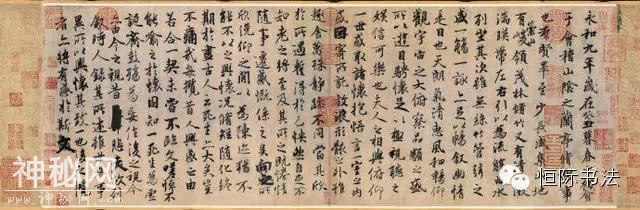 永和九年歲在癸丑暮春之初會
于會稽山陰之蘭亭脩稧事
也群賢畢至少長咸集此地
有崇山峻領茂林脩竹又有清流激
湍暎帶左右引以為流觴曲水
列坐其次雖無絲竹管弦之
盛一觴一詠亦足以暢敘幽情
是日也天朗氣清惠風和暢仰
觀宇宙之大俯察品類之盛
所以遊目騁懷足以極視聽之
娛信可樂也夫人之相與俯仰
一世或取諸懷抱悟言一室之內
或因寄所託放浪形骸之外雖
趣舍萬殊靜躁不同當其欣
於所遇暫得於己怏然自足不
知老之將至及其所之既惓情
隨事遷感慨係之矣向之所
欣俛仰之閒以為陳迹猶不
能不以之興懷況脩短隨化終
期於盡古人云死生亦大矣豈
不痛哉每攬昔人興感之由
若合一契未嘗不臨文嗟悼不
能喻之於懷固知一死生為虛
誕齊彭殤為妄作後之視今
亦由今之視昔悲夫故列
敘時人錄其所述雖世殊事
異所以興懷其致一也後之攬
者亦將有感於斯文
神秘网
恒际书法